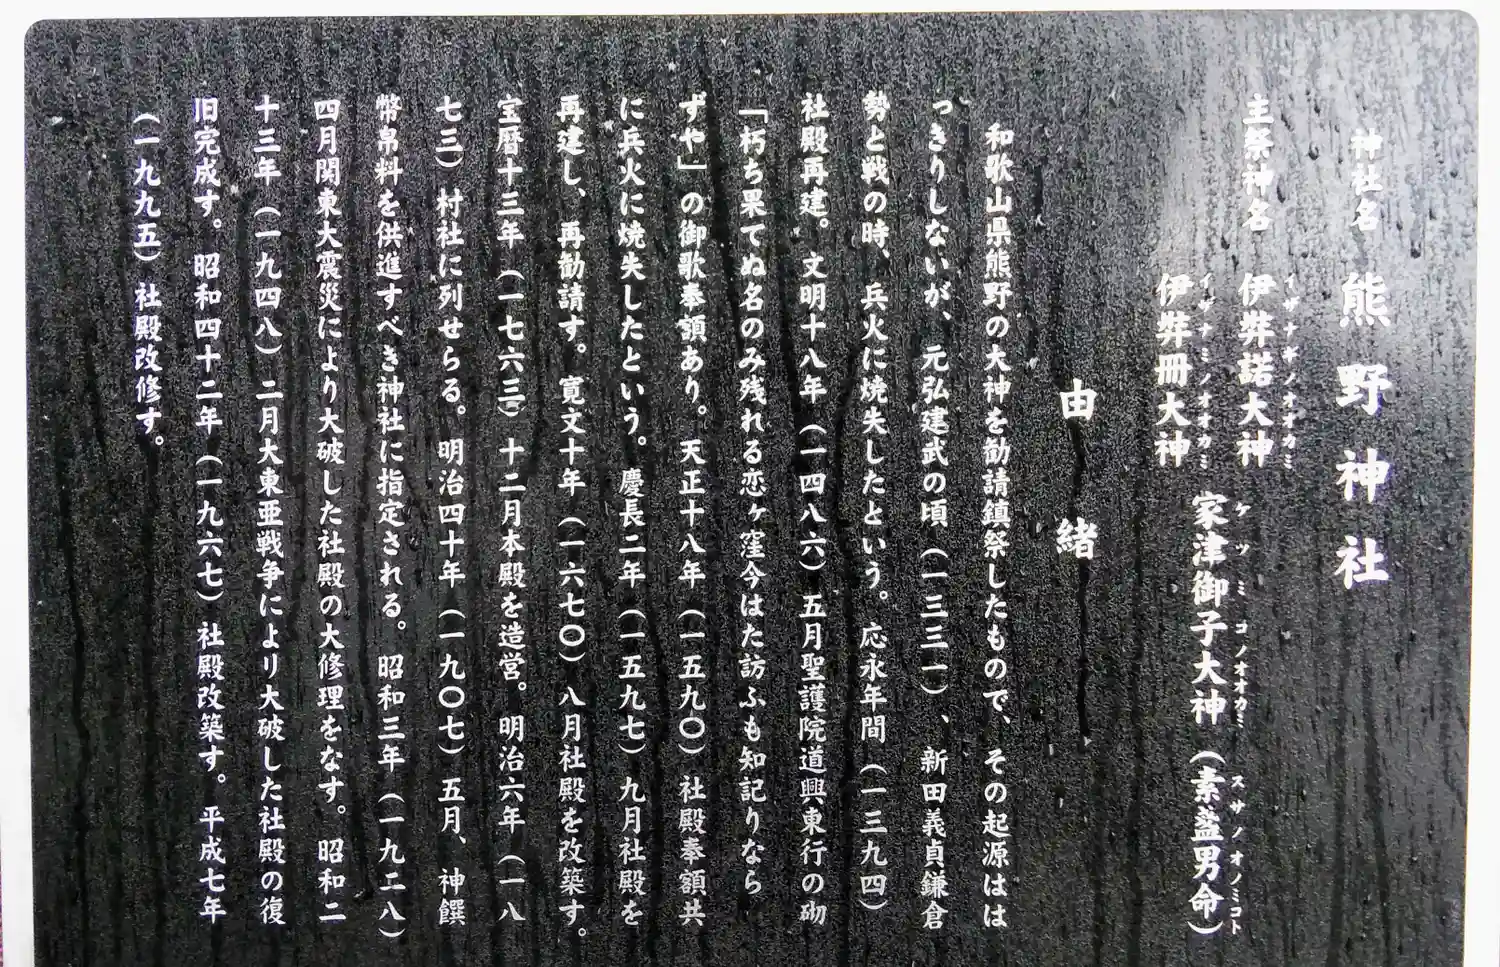 神社名 熊野神社
主祭神名 伊弊諾大神
イザナギノオオカミ
伊弊冊大神
イザナミノオオカミ
家津御子大神（素盞男命）
ケツミコノオオカミ スサノオノミコト
由緒
和歌山県熊野の大神を勧請鎮祭したもので、その起源はは
っきりしないが、元弘建武の頃（一三三一）、新田義貞鎌倉
勢と戦の時、兵火に焼失したという。応永年間（一三九四）
社殿再建。文明十八年（一四八六）五月聖護院道興東行の砌
「朽ち果てぬ名のみ残れる恋ヶ窪今はた訪ふも知記りなら
ずや」の御歌奉額あり。天正十八年（一五九〇）社殿奉額共
に兵火に焼失したという。慶長二年（一五九七）九月社殿を
再建し、再勧請す。寛文十年（一六七〇）八月社殿を改築す。
宝暦十三年（一七六三）十二月本殿を造営。明治六年（一八
七三）村社に列せらる。明治四十年（一九〇七）五月、神饌
幣帛料を供進すべき神社に指定される。昭和三年（一九二八）
四月関東大震災により大破した社殿の大修理をなす。昭和二
十三年（一九四八）二月大東亜戦争により大破した社殿の復
旧完成す。昭和四十二年（一九六七）社殿改築す。平成七年
（一九九五）社殿改修す。